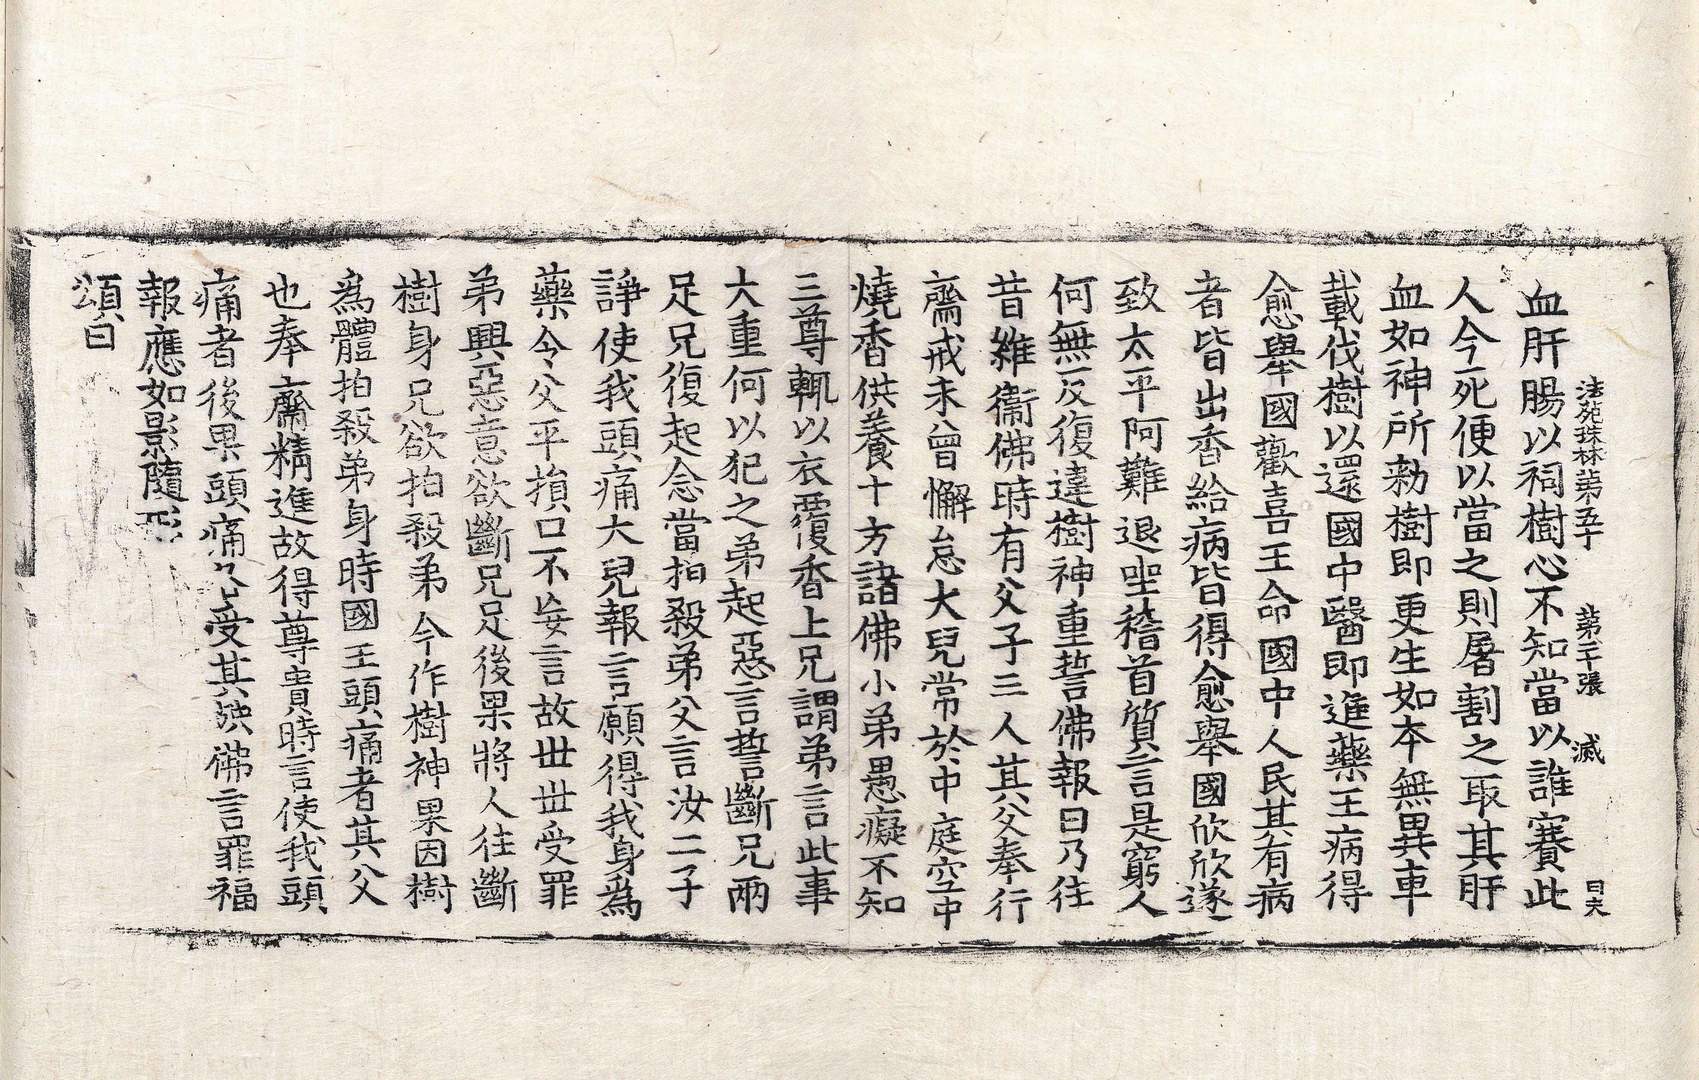 法苑珠林第五十 第二十張 滅 日大
血肝腸以祠樹心不知當以誰賽此
人今死便以當之則屠割之取其肝
血如神所勑樹即更生如本無異車
載伐樹以還國中醫即進藥王病得
愈舉國歡喜王命國中人民其有病
者皆出香給病皆得愈舉國欣欣遂
致太平阿難退坐稽首質言是窮人
何無反復違樹神重誓佛報曰乃往
昔維衞佛時有父子三人其父奉行
齋戒未曾懈怠大兒常於中庭空中
燒香供養十方諸佛小弟愚癡不知
三尊輒以衣覆香上兄謂弟言此事
大重何以犯之弟起惡言誓斷兄兩
足兄復起念當拍殺弟父言汝二子
諍使我頭痛大兒報言願得我身爲
藥令父平損口不妄言故世世受罪
弟興惡意欲斷兄足後果將人往斷
樹身兄欲拍殺弟今作樹神果因樹
爲體拍殺弟身時國王頭痛者其父
也奉齋精進故得尊貴時言使我頭
痛者後果頭痛各受其殃佛言罪福
報應如影隨形
頌曰